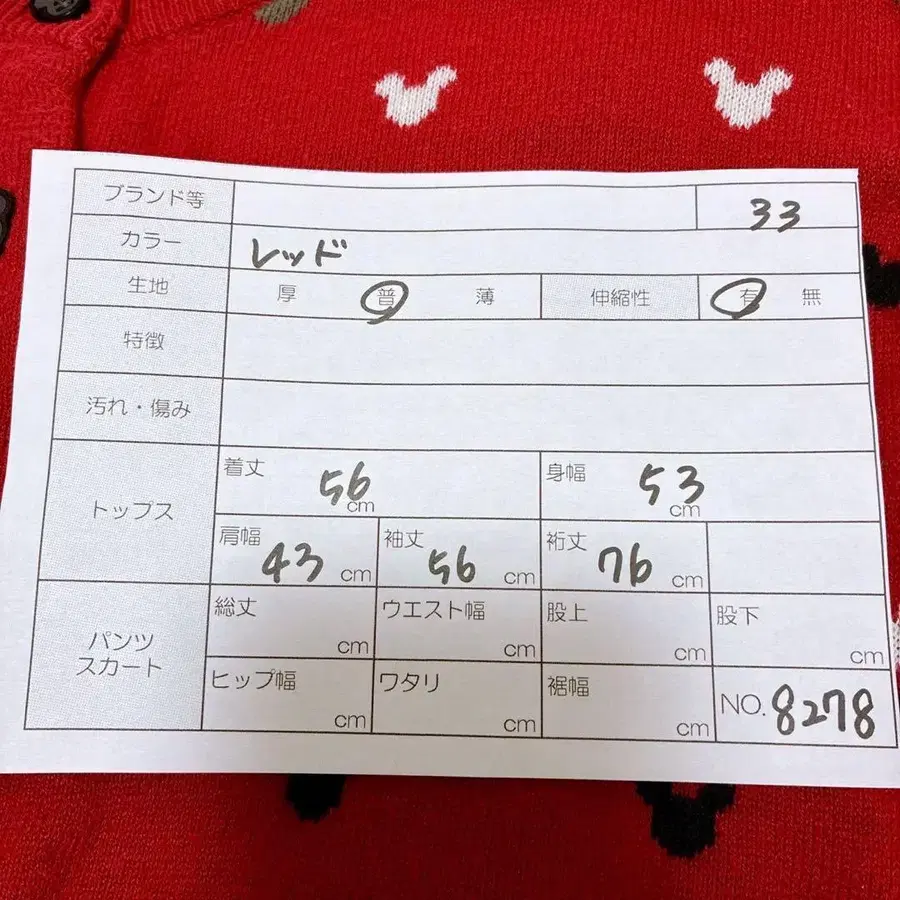 ブランド等 33
カラー レッド
生地 厚 普 薄 伸縮性 有 無
特徴
汚れ・傷み
トップス
着丈 56 cm 身幅 53 cm
肩幅 43 cm 袖丈 56 cm 裄丈 76 cm
パンツ
スカート
総丈 cm ウエスト幅 cm 股上 cm 股下 cm
ヒップ幅 cm ワタリ cm 裾幅 cm NO. 8278